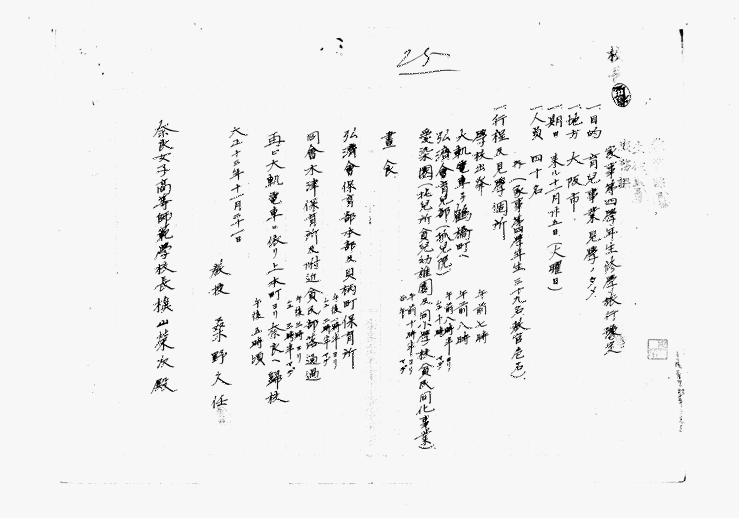 25
家事第四學年生修學旅行豫定
一目的 育兒事業見學ノタメ
一地方 大阪市
一期日 来ル十一月廿五日(火曜日)
一人員 四十名
外(家事第四學年生三十九名教官壱名)
一行程及見學個所
學校出発 午前七時
大軌電車ニテ鶴橋町へ 午前八時
弘濟會育兒部(孤兒院) 午前八時半ヨリ
仝十時マデ
愛染園(託兒所貧兒幼稚園及同小學校貧民同化事業)
午前十時半ヨリ
正午マデ
晝食
弘濟會保育部本部及貝柄町保育所
同會木津保育所及附近貧民部落通過
再ビ大軌電車ニ依リ上本町ヨリ奈良へ歸校
午後五時頃
大正十三年十一月二十一日
教授 桑野久任
奈良女子高等師範學校長槙山榮次殿